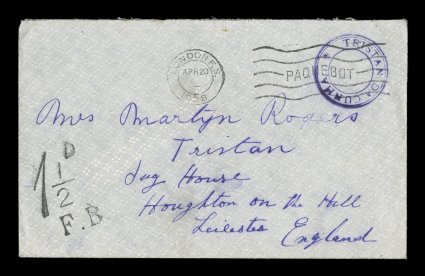 LONDON F.S.
APR 20
PAQUEBOT
TRISTAN DA CUNHA
Mrs Martyn Rogers
Tristan
House
Houghton on the Hill
Leicester
England
1 1/2 D
F.B